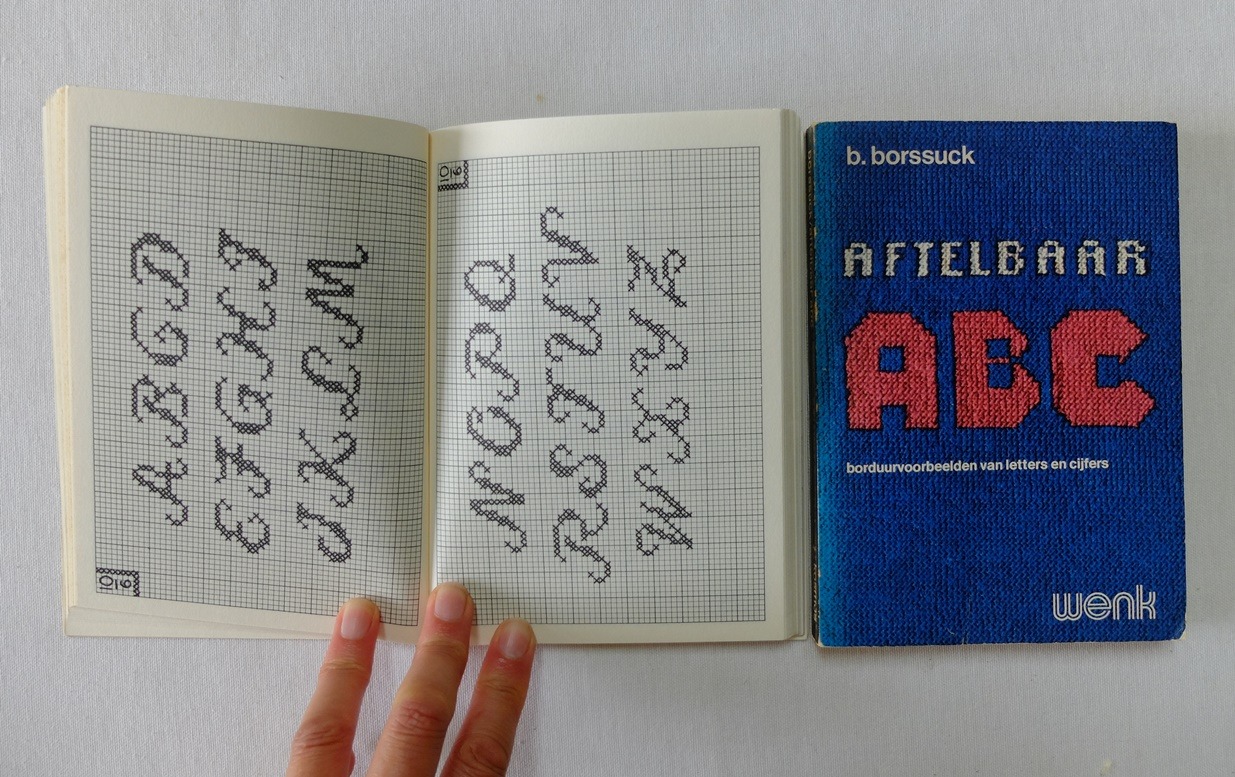 10
6
A B C D
E F G H I
J K L M
10
6
N O P Q
R S T U V
W X Y Z
b. borssuck
AFTELBAAR
ABC
borduurvoorbeelden van letters en cijfers
wenk